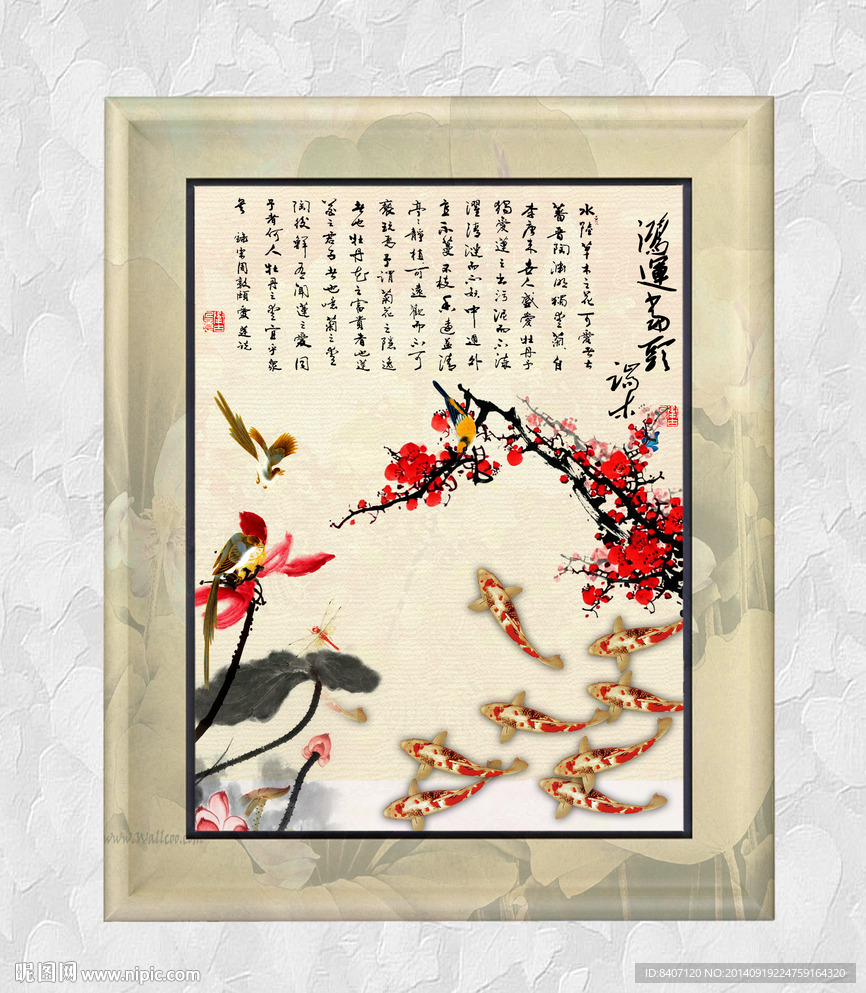 鴻運當頭
端木
水陸草木之花可愛者甚
蕃晉陶渊明獨愛菊自
李唐来世人盛愛牡丹予
獨愛蓮之出污泥而不染
濯清漣而不妖中通外
直不蔓不枝香遠益清
亭亭静植可遠觀而不可
褻玩焉予謂菊花之隱逸
者也牡丹花之富貴者也蓮
花之君子者也噫菊之愛
陶後鲜有聞蓮之愛同
予者何人牡丹之愛宜乎衆
矣 録宋周敦頤愛蓮説
www.Wallcoo.com
昵图网 www.nipic.com
ID:8407120 NO:20140919224759164320